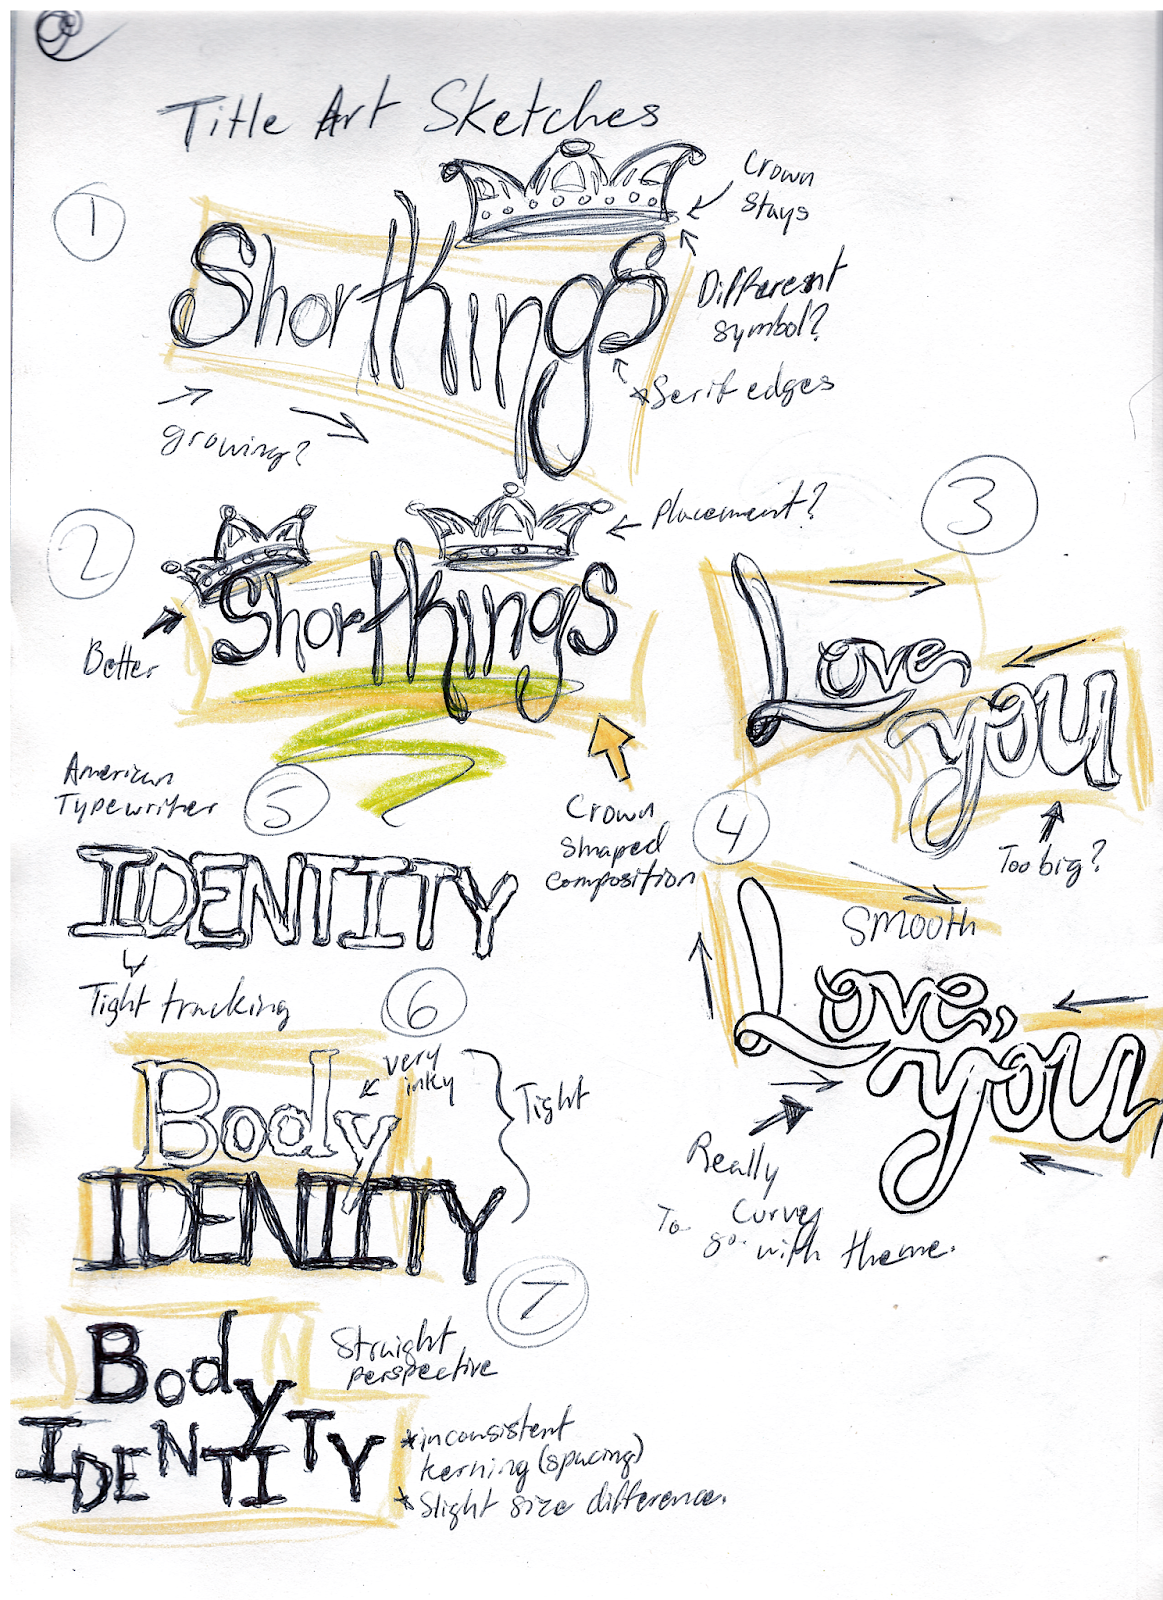 Title Art Sketches
1
Shortkings
Crown
stays
Different
symbol?
*Serif edges
growing?
2
Shortkings
Placement?
Better
Crown
shaped
composition
3
Love,
you
Too big?
4
Smooth
Love,,
you
Really
Curvy
To go with theme.
American
Typewriter
5
IDENTITY
Tight tracking
6
Body
very
inky
Tight
IDENIITY
7
Body
IDENTITY
Straight
perspective
*inconsistent
kerning (spacing)
*Slight size difference.